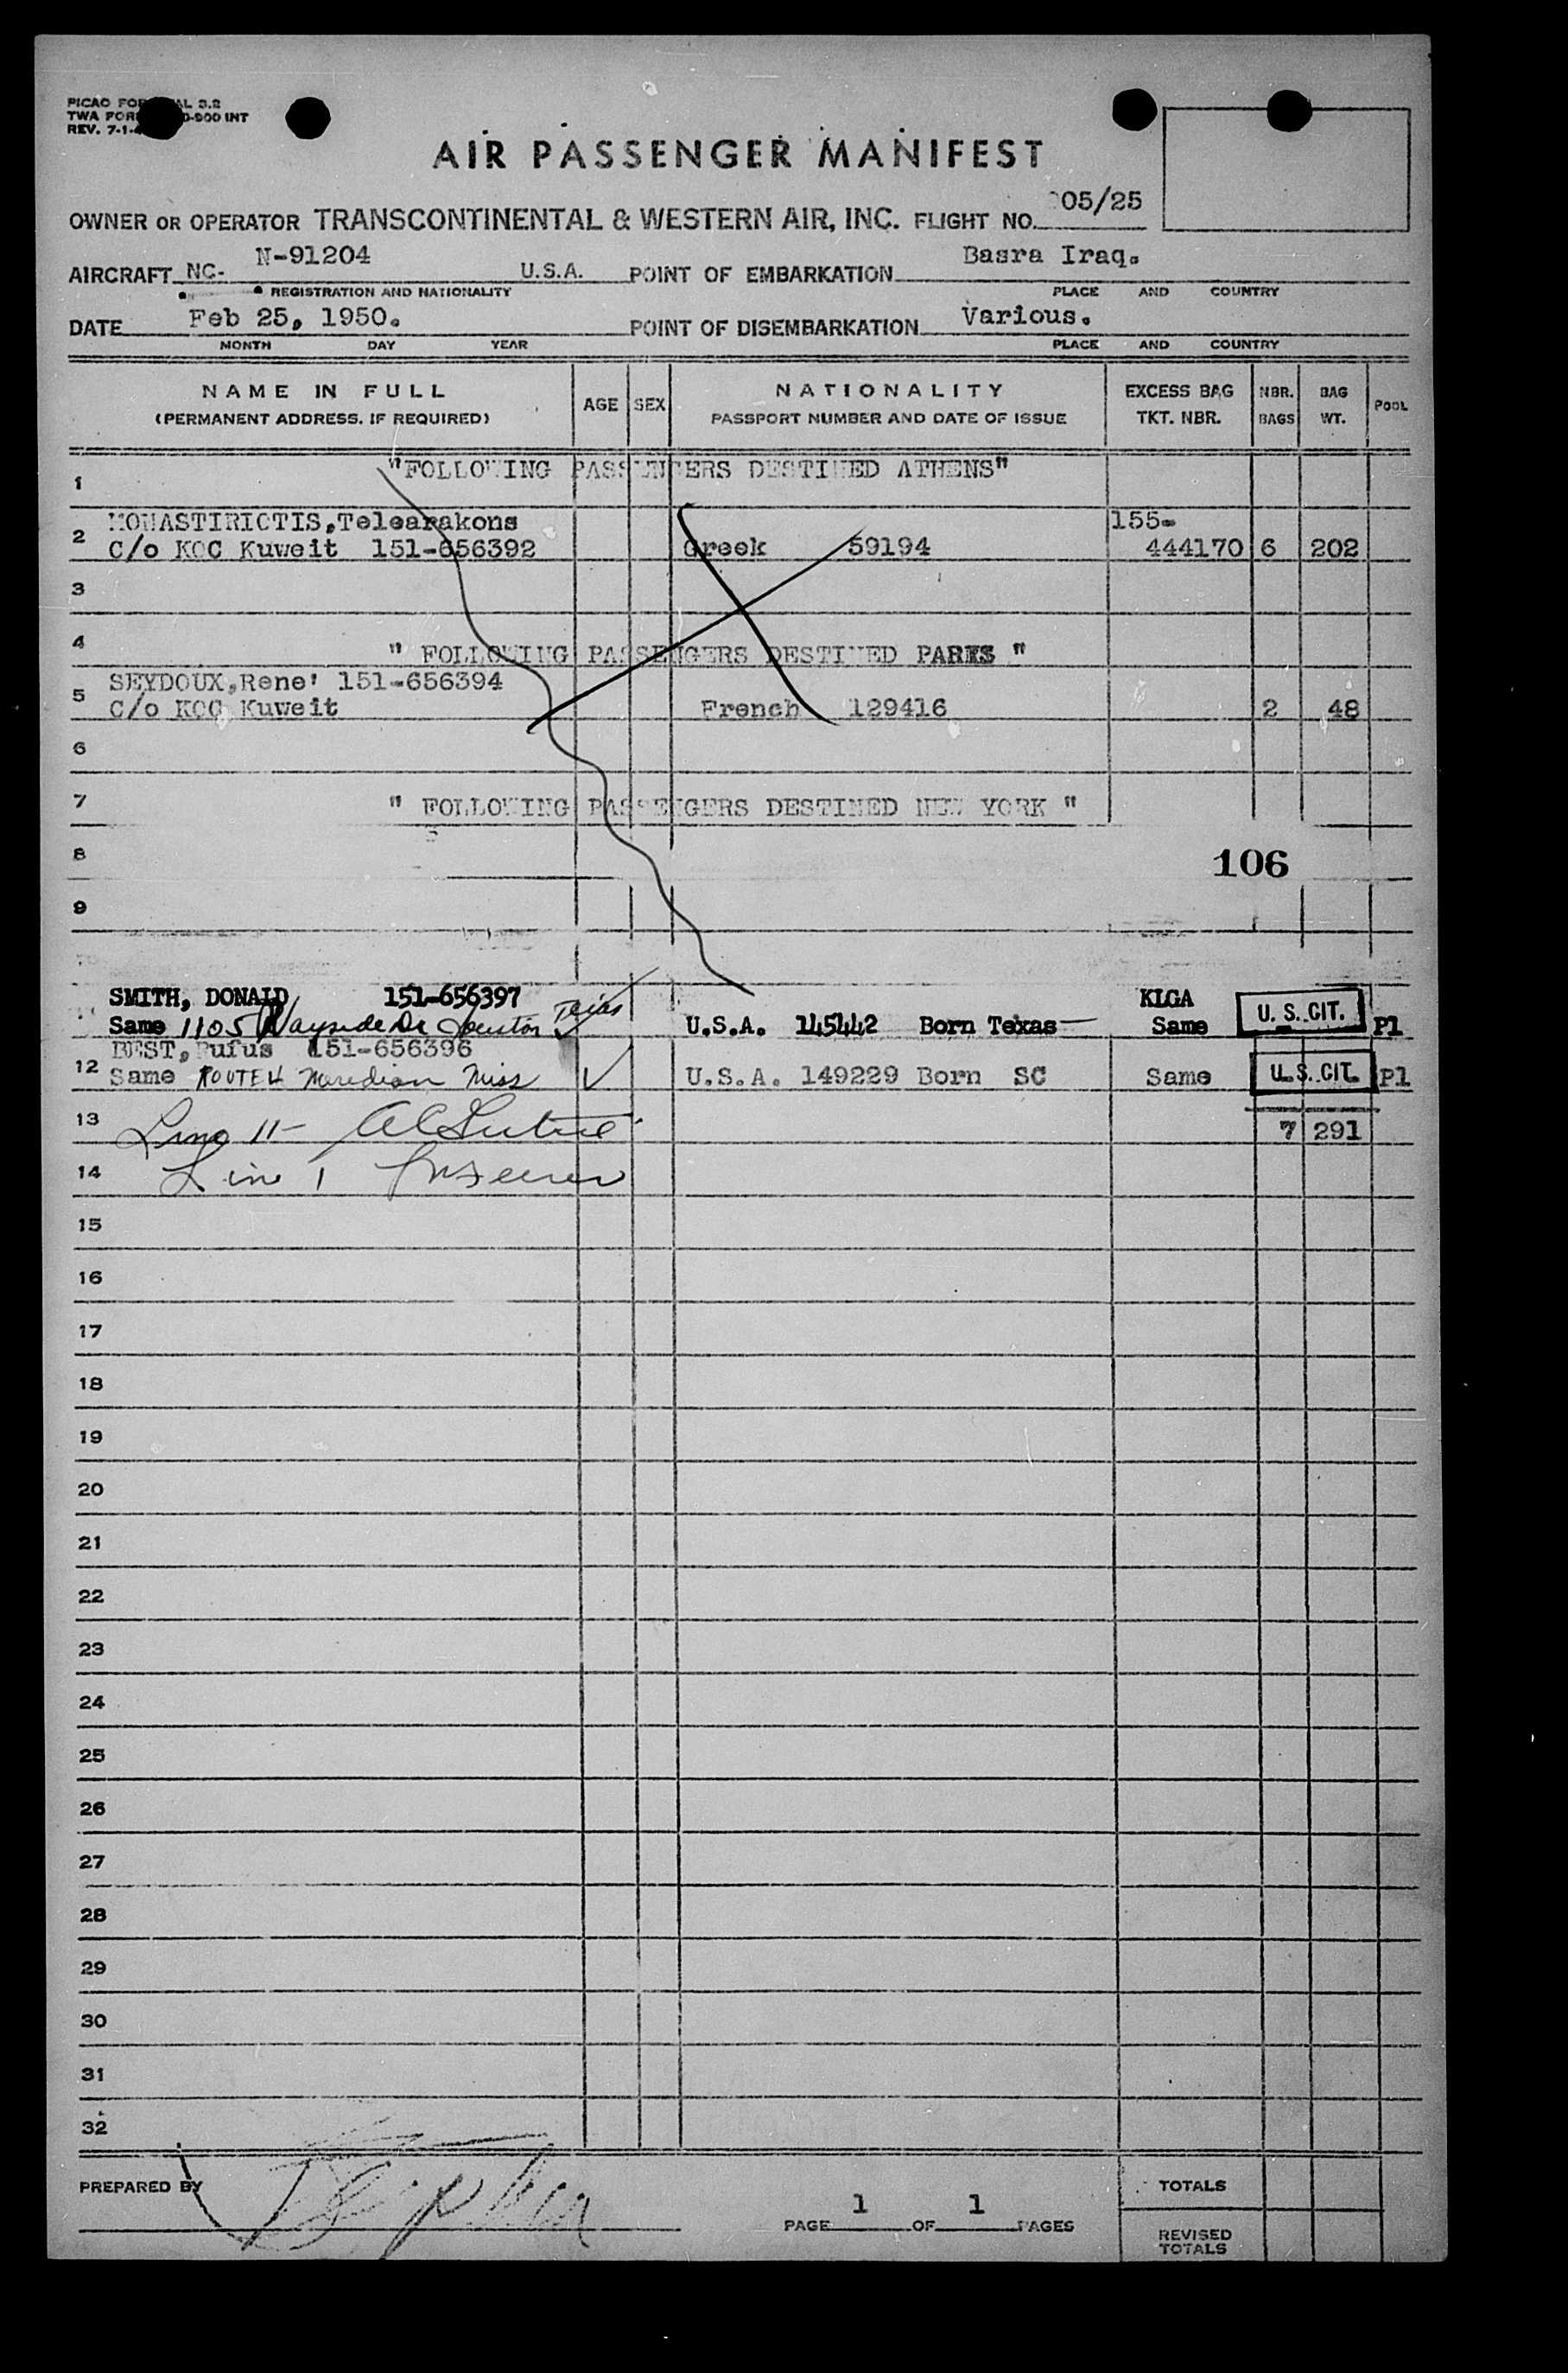 AIR PASSENGER MANIFEST
OWNER OR OPERATOR TRANSCONTINENTAL & WESTERN AIR, INC. FLIGHT NO. 05/25
AIRCRAFT NC- N-91204 U.S.A. POINT OF EMBARKATION Basra Iraq.
REGISTRATION AND NATIONALITY PLACE AND COUNTRY
DATE Feb 25, 1950. POINT OF DISEMBARKATION Various.
MONTH DAY YEAR PLACE AND COUNTRY
NAME IN FULL AGE SEX NATIONALITY EXCESS BAG NBR. BAG POOL
(PERMANENT ADDRESS. IF REQUIRED) PASSPORT NUMBER AND DATE OF ISSUE TKT. NBR. BAGS WT.
1 "FOLLOWING PASSENGERS DESTINED ATHENS"
MONASTIRICTIS,Telearakons 155-
2 C/o KOC Kuweit 151-656392 Greek 59194 444170 6 202
3
4 " FOLLOWING PASSENGERS DESTINED PARIS "
SEYDOUX,Rene' 151-656394
5 C/o KOC Kuweit French 129416 2 48
6
7 " FOLLOWING PASSENGERS DESTINED NEW YORK "
8 106
9
SMITH, DONALD 151-656397 KLGA
Same 1105 Wayside Dr Houston Texas U.S.A. 145442 Born Texas Same U. S. CIT. Pl
BEST,Rufus 151-656396
12 Same ROUTE 4 Meredian Miss U.S.A. 149229 Born SC Same U. S. CIT. Pl
13 Line 11- 7 291
14 Line 1
15
16
17
18
19
20
21
22
23
24
25
26
27
28
29
30
31
32
PREPARED BY TOTALS
PAGE 1 OF 1 PAGES
REVISED
TOTALS